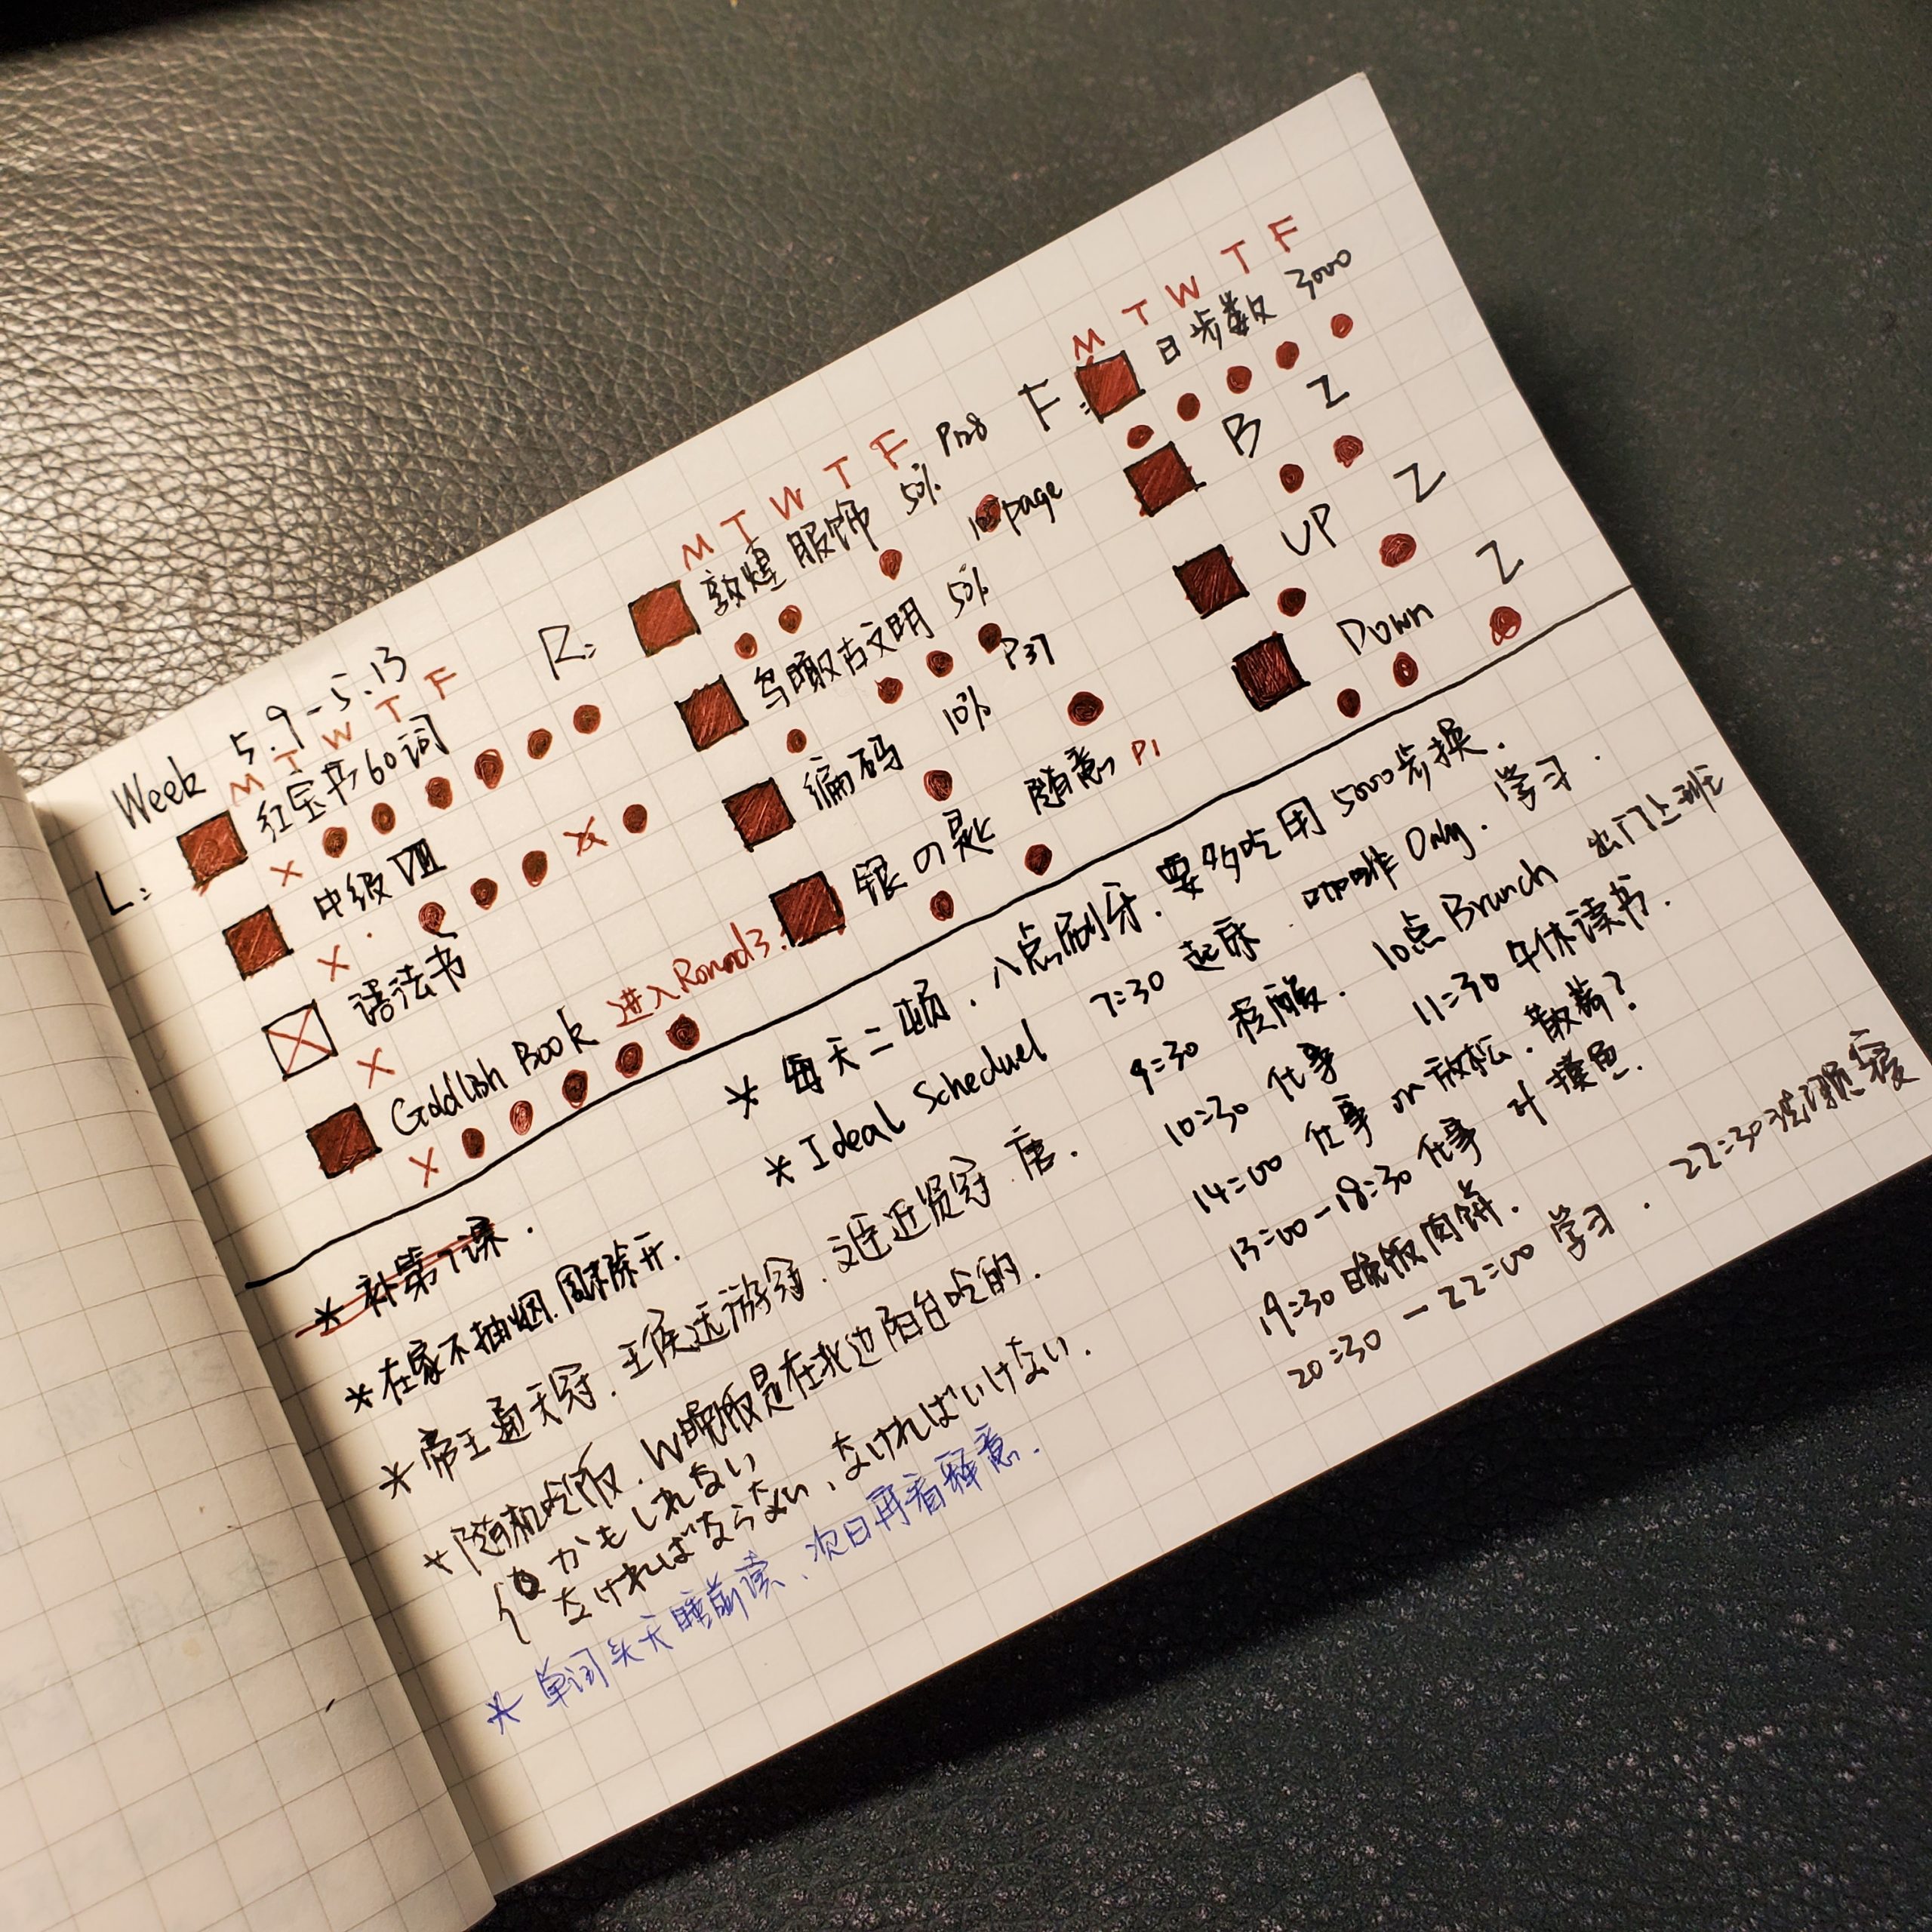 Week 5.9-5.13
M T W T F
L: 红宝书60词
中级 VIII
语法书
Goldlish Book 进入Round3.
R: M T W T F
敦煌服饰 50% P128
page
鸟瞰古文明 50%
编码 10% P37
银の匙 随意 P1
F: M T W T F
日步数 3000
B Z
UP Z
Down Z
* 补第7课.
* 在家不抽烟.周末除开.
* 帝王通天冠.王侯远游冠.文臣近贤冠 唐.
* 随机吃饭.W晚饭是在北边阳台吃的.
かもしれない
なければならない、なければいけない.
* 单词头天睡前读、次日再看释意.
* 每天二顿.八点刷牙.要多吃用5000步换.
* Ideal Scheduel 7:30 起床.咖啡 Only.学习.
9:30 核酸. 10点 Brunch 出门上班
10:30 仕事 11:30 午休读书.
14:00 仕事 or 放松.散步?
13:00-18:30 仕事 or 摸鱼.
19:30 晚饭肉饼.
20:30 - 22:00 学习. 22:30